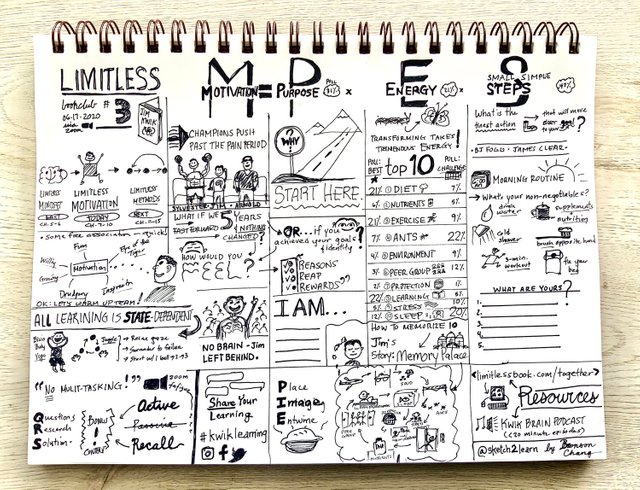 LIMITLESS
bookclub # 3
06-17-2020
via zoom
JIM KWIK
LIMITLESS MINDSET
LAST
CH. 5-6
LIMITLESS MOTIVATION
TODAY
CH. 7-10
LIMITLESS METHODS
NEXT
• Some free association - quick!
Fire
Eye of the Tiger
Willy
Motivation
Drudgery
OK: LET'S WARM UP TEAM!
ALL LEARINING IS STATE-DEPENDENT
"NO MULIT-TASKING!"
ZOOM
Questions
Research
Solution
BONUS!
Active
Passive
Recall
M = P
MOTIVATION = PURPOSE
POLL
31%
x
CHAMPIONS PUSH
PAST THE PAIN PERIOD
SYLVESTER - JIM - ARNOLD
WHAT IF WE
FAST FORWARD 5 YEARS
& NOTHING
CHANGED?
HOW WOULD YOU
FEEL?
NO BRAIN - Jim
LEFT BEHIND.
Share Your
Learning
#kwiklearning
WHY?
START HERE.
OR... if you
achieved your goals?
& identity
REASONS
REAP
REWARDS
I AM...
Place
Image
Entwine
E
ENERGY
21%
x
TRANSFORMING TAKES
TREMENDOUS ENERGY!
POLL: BEST
top 10
POLL: CHALLENGE
21% ① DIET 7%
4% ② NUTRIENTS 5%
21% ③ EXERCISE 9%
7% ④ ANTS 22%
4% ⑤ ENVIRONMENT 9%
3% ⑥ PEER GROUP 12%
2% ⑦ PROTECTION 1%
22% ⑧ LEARNING 8%
5% ⑨ STRESS 10%
12% ⑩ SLEEP 20%
HOW TO MEMORIZE 10
Jim's
Story: Memory Palace
S
SMALL SIMPLE
STEPS
What is the
tiniest action
that will move
closer
to your goal?
BJ FOGG - JAMES CLEAR
MOARNING ROUTINE
What's your non-negotiables?
drink water
supplements
nutrition
cold shower
brush opposite hand
3-min. workout
fix your bed
WHAT ARE YOURS?
1.
2.
3.
4.
5.
limitlessbook.com/together
Resources
KWIK BRAIN PODCAST
(<20 minute episodes)
@sketch2learn by Benson Chang